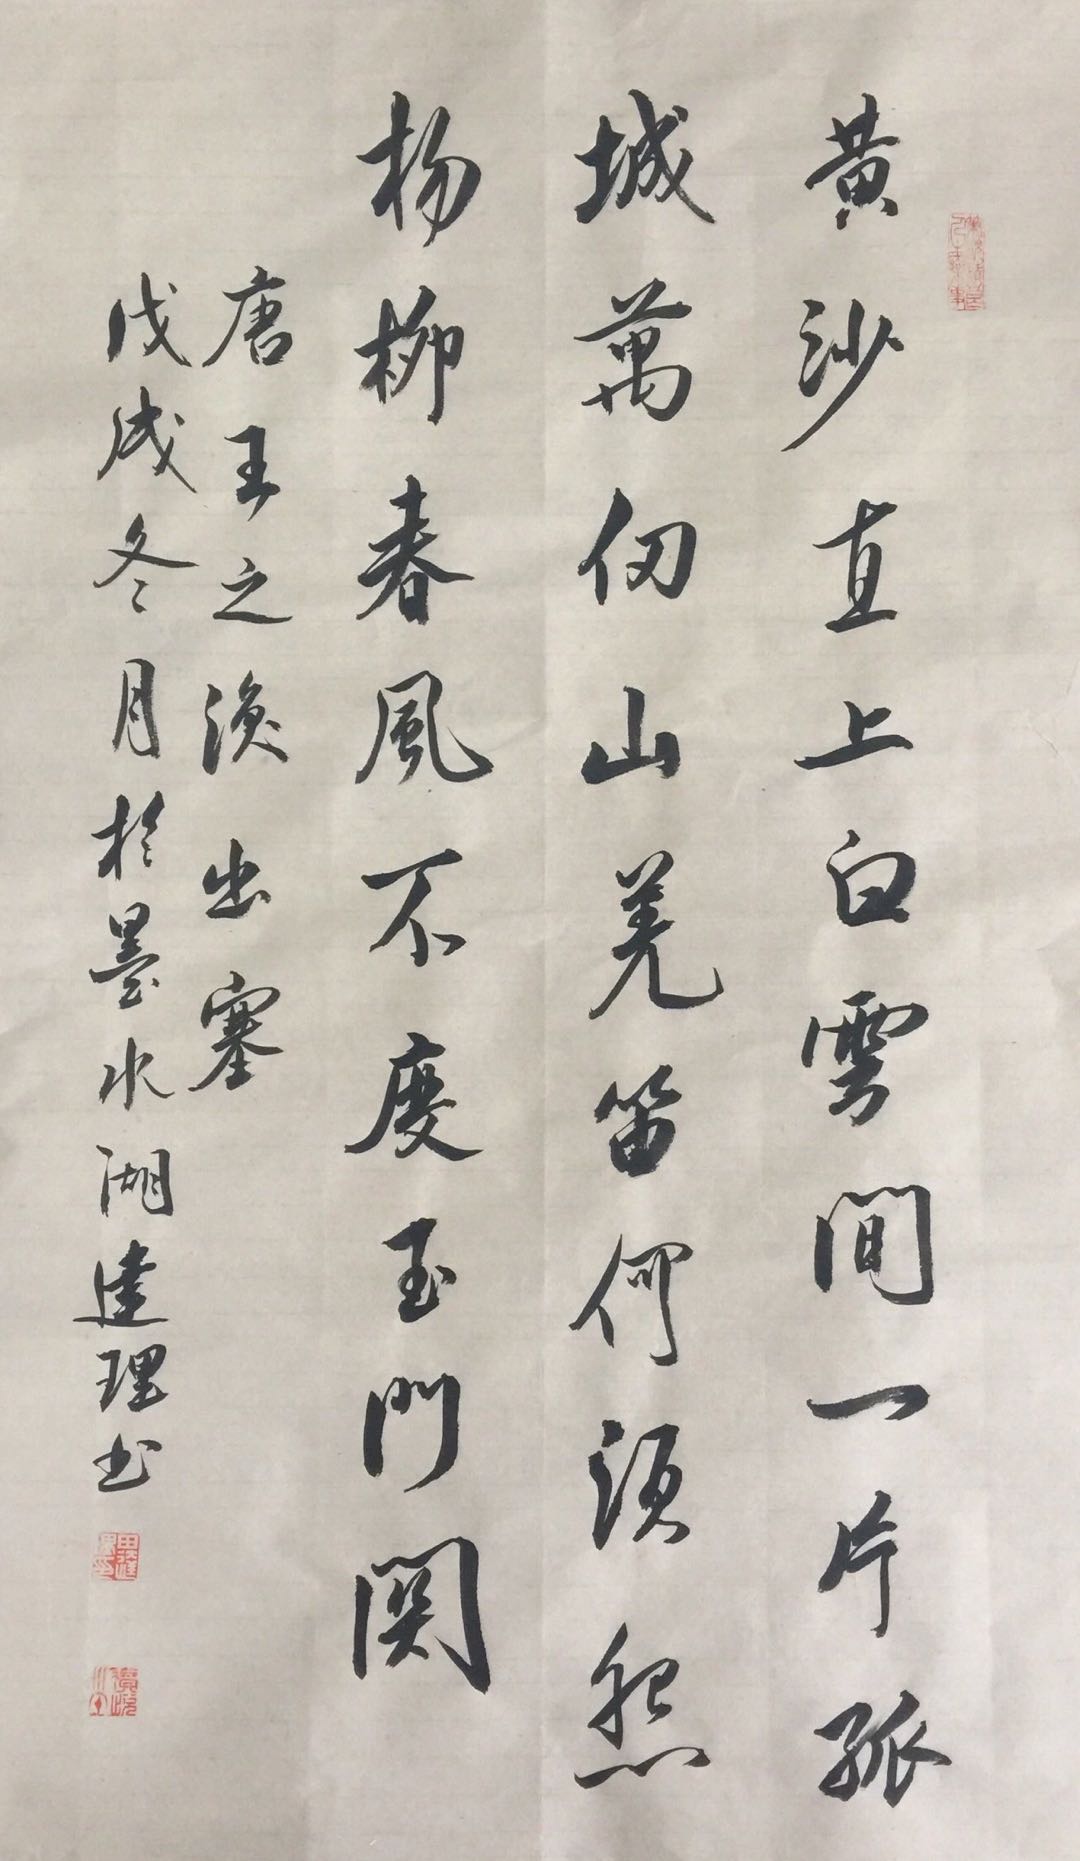 黄沙直上白雲間一片孤
城萬仞山羌笛何須怨
楊柳春風不度玉門関
唐王之渙出塞
戊戌冬月於墨水湖達理书